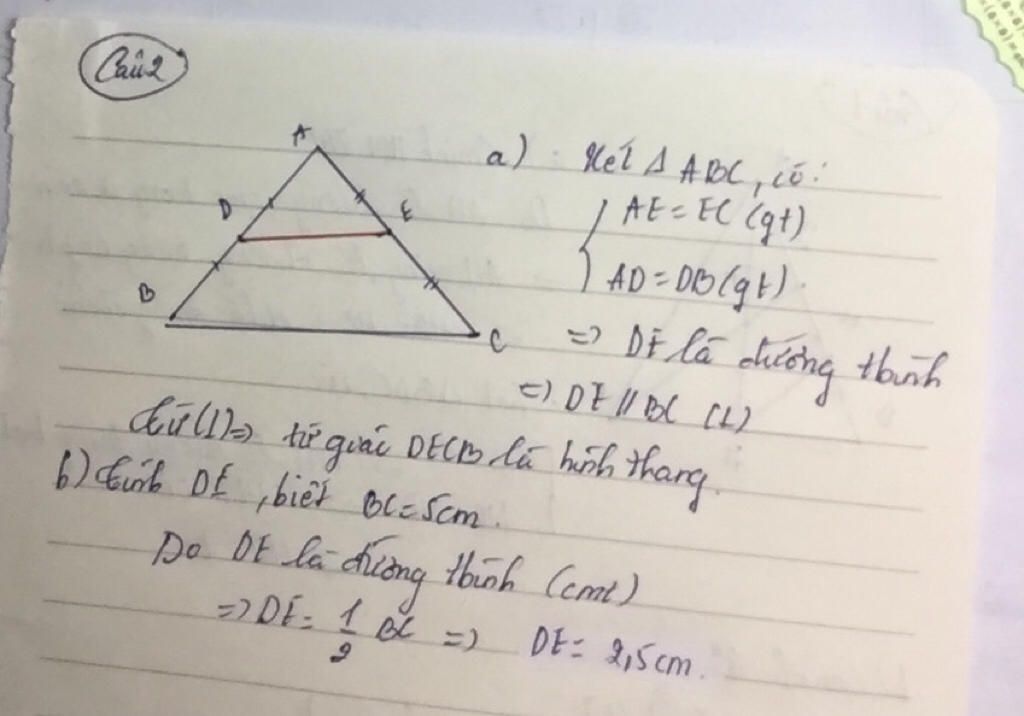 Câu 2
A
D
E
B
C
a) Xét Δ ABC, có:
AE = EC (gt)
AD = DB (gt).
=> DE là đường tbình
=> DE // BC (1)
Từ (1) => tứ giác DECB là hình thang.
b) Tính DE, biết BC = 5cm.
Do DE là đường tbình (cmt)
=> DE = 1/2 BC => DE = 2,5cm.